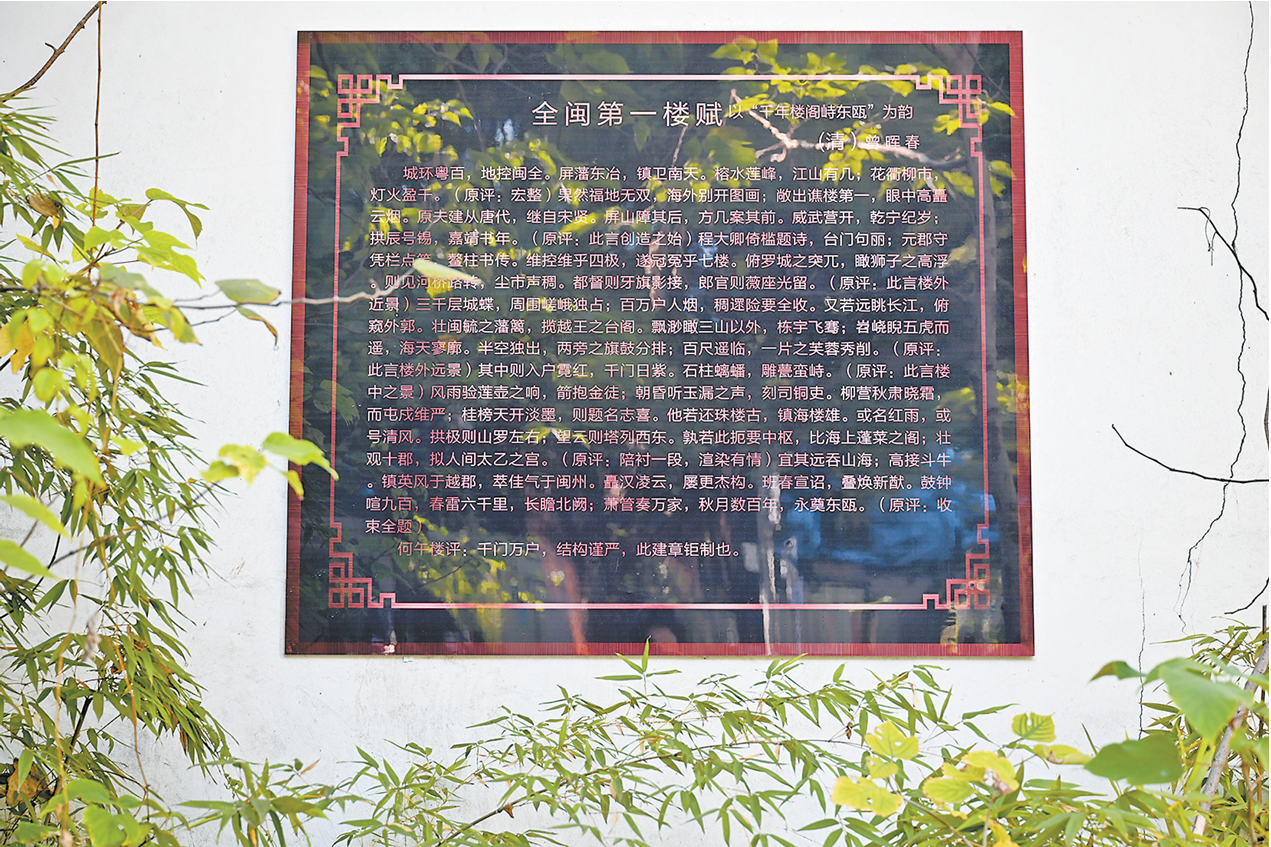 全闽第一楼赋 以“千年楼阁峙东瓯”为韵
（清）曾晖春
城环粤百，地控闽全。屏藩东冶，镇卫南天。榕水莲峰，江山有几；花衢柳市，
灯火盈千。（原评：宏整）果然福地无双，海外别开图画；敞出谯楼第一，眼中高矗
云烟。原夫建从唐代，继自宋贤。屏山障其后，方几案其前。威武营开，乾宁纪岁；
拱辰号锡，嘉靖书年。（原评：此言创造之始）程大卿倚槛题诗，台门句丽；元郡守
凭栏点笔，鳌柱书传。维控维乎四极，遂冠冕乎七楼。俯罗城之突兀，瞰狮子之高浮
。则见河桥路转，尘市声稠。都督则牙旗影接，郎官则薇座光留。（原评：此言楼外
近景）三千层城蝶，周围嵯峨独占；百万户人烟，稠遝险要全收。又若远眺长江，俯
窥外郭。壮闽毓之藩篱，揽越王之台阁。飘渺瞰三山以外，栋宇飞骞；岧峣睨五虎而
遥，海天寥廓。半空独出，两旁之旗鼓分排；百尺遥临，一片之芙蓉秀削。（原评：
此言楼外远景）其中则入户霓红，千门日紫。石柱螭蟠，雕甍蛮峙。（原评：此言楼
中之景）风雨验莲壶之响，箭抱金徒；朝昏听玉漏之声，刻司铜吏。柳营秋肃晓霜，
而屯戍维严；桂榜天开淡墨，则题名志喜。他若还珠楼古，镇海楼雄。或名红雨，或
号清风。拱极则山罗左右；望云则塔列西东。孰若此扼要中枢，比海上蓬莱之阁；壮
观十郡，拟人间太乙之宫。（原评：陪衬一段，渲染有情）宜其远吞山海；高接斗牛
。镇英风于越郡，萃佳气于闽州。矗汉凌云，屡更杰构。班春宣诏，叠焕新猷。鼓钟
喧九百，春雷六千里，长瞻北阙；萧管奏万家，秋月数百年，永奠东瓯。（原评：收
束全题）
何午楼评：千门万户，结构谨严，此建章钜制也。